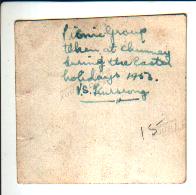 Picnic Group
taken at Chimney
during the Easter
holidays 1953.
V.S. Kurseong
15